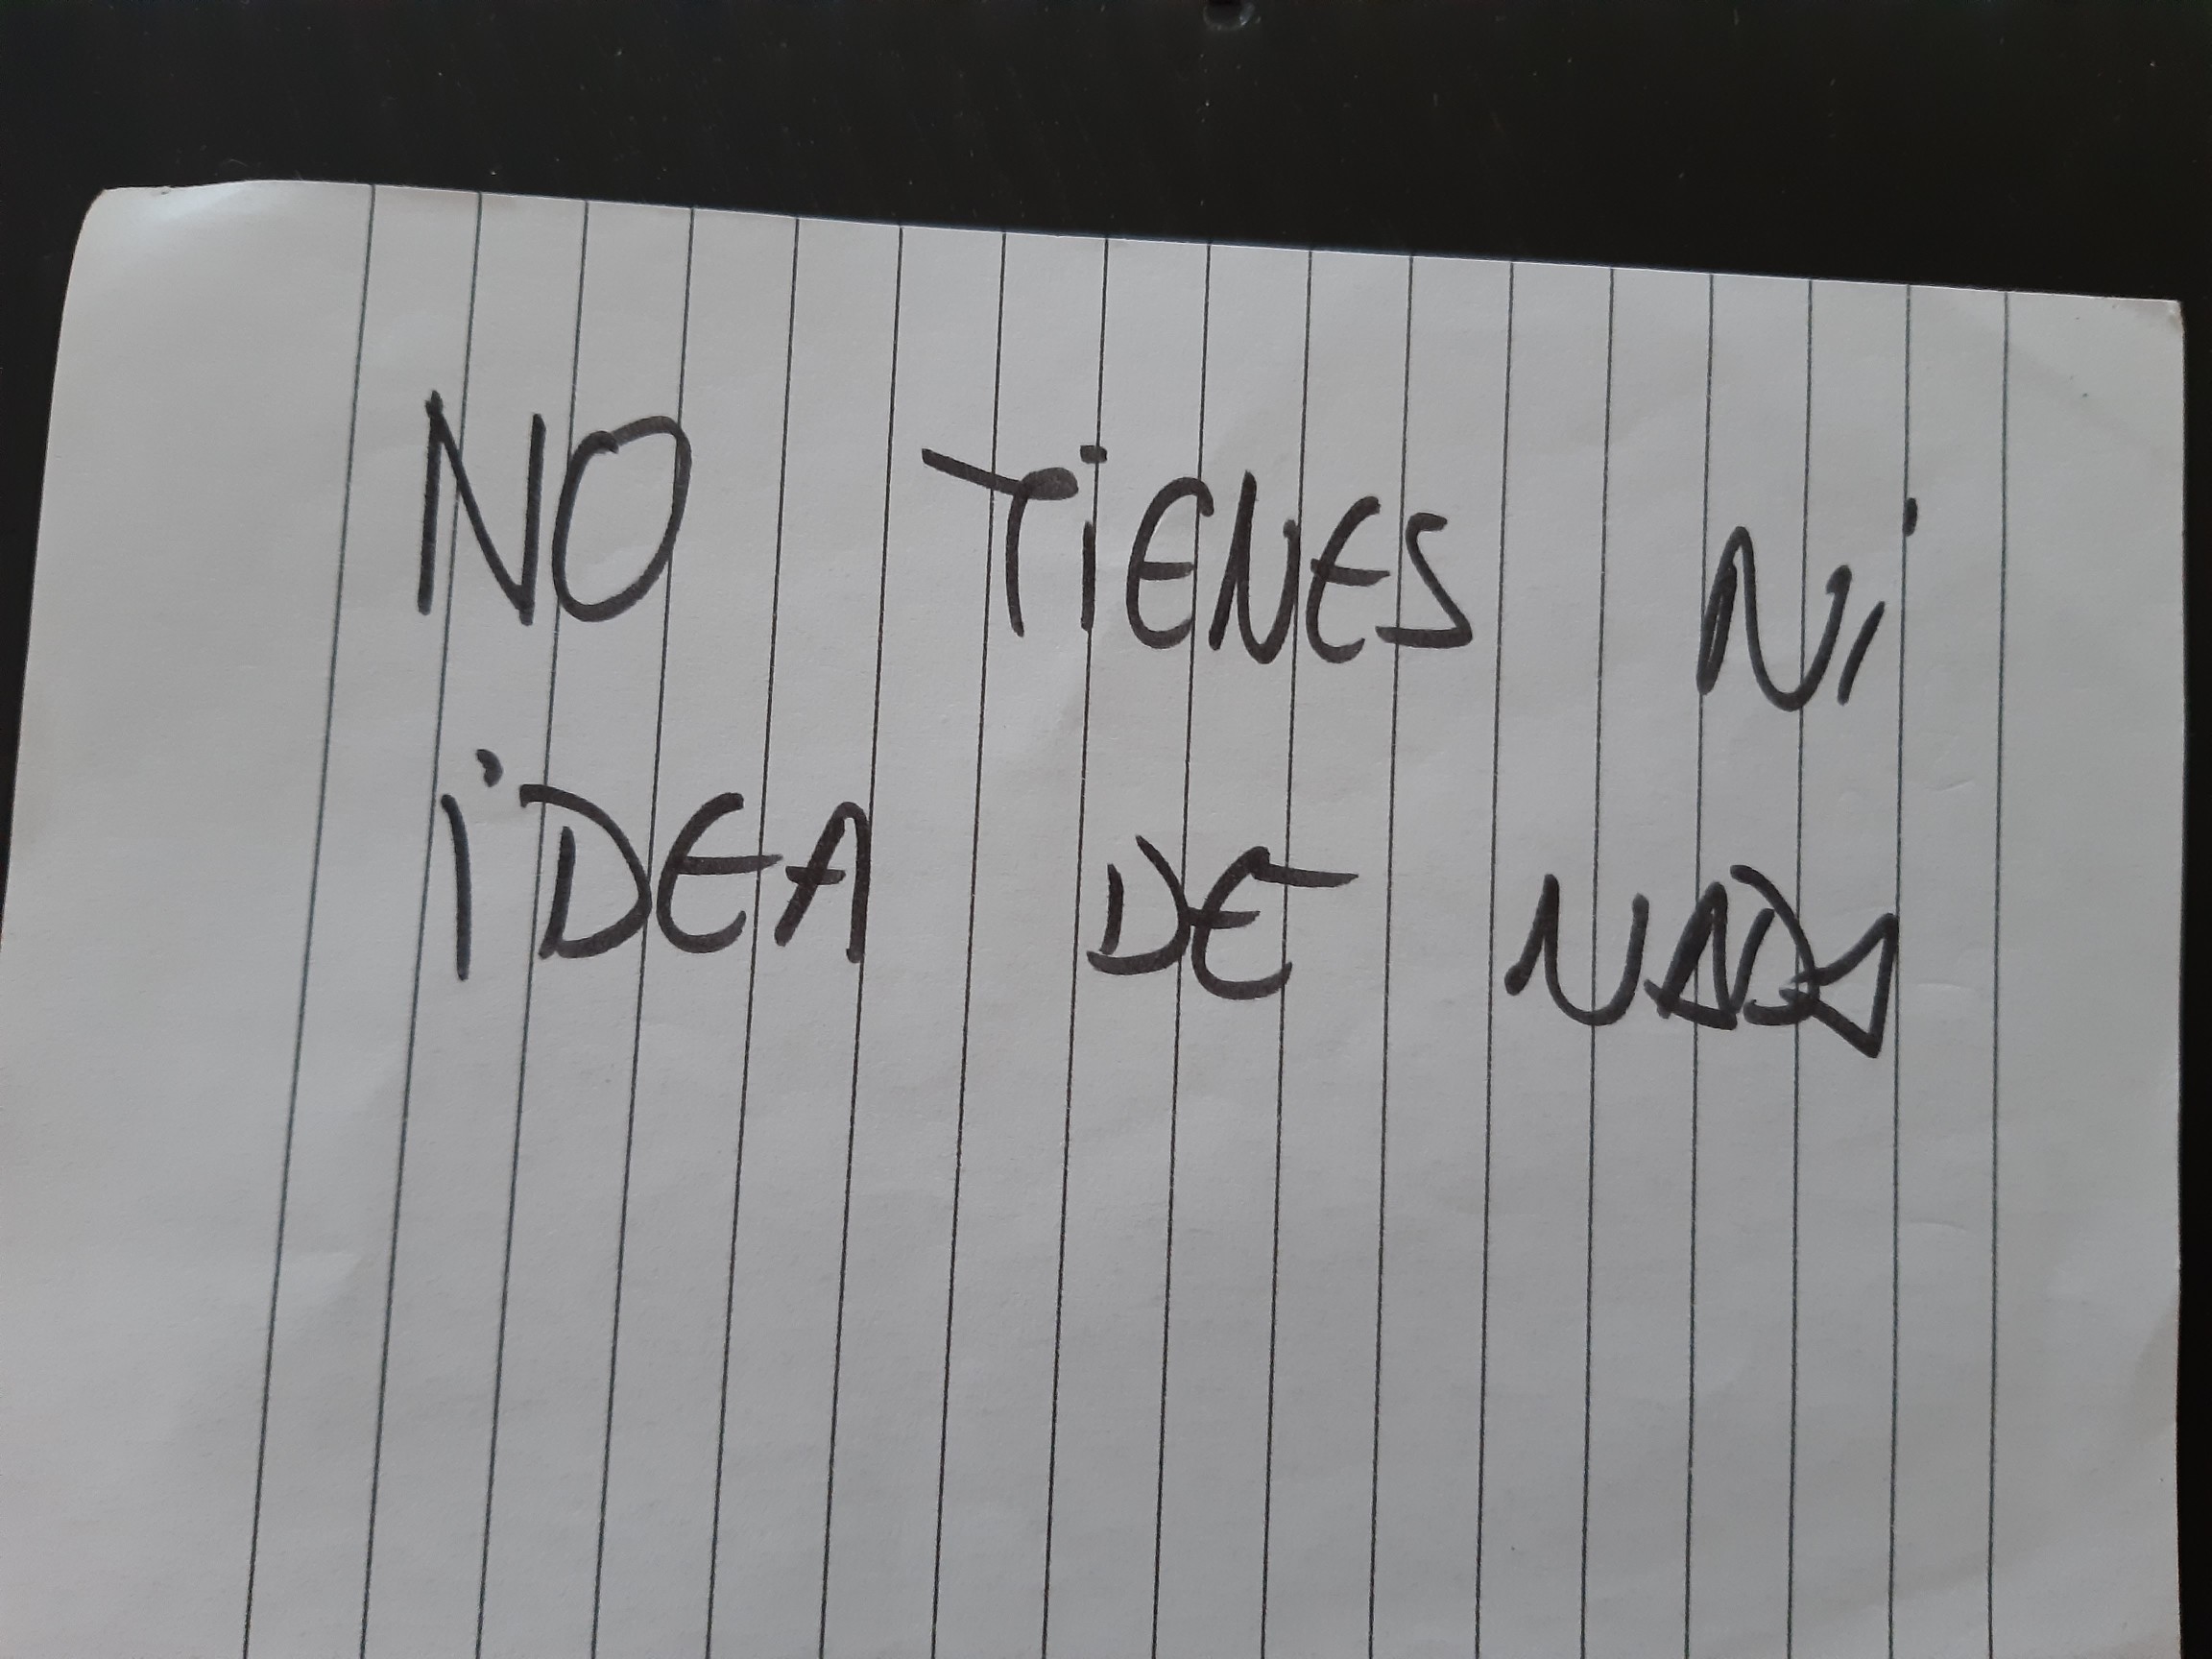 NO TiENES Ni
iDEA DE NADA